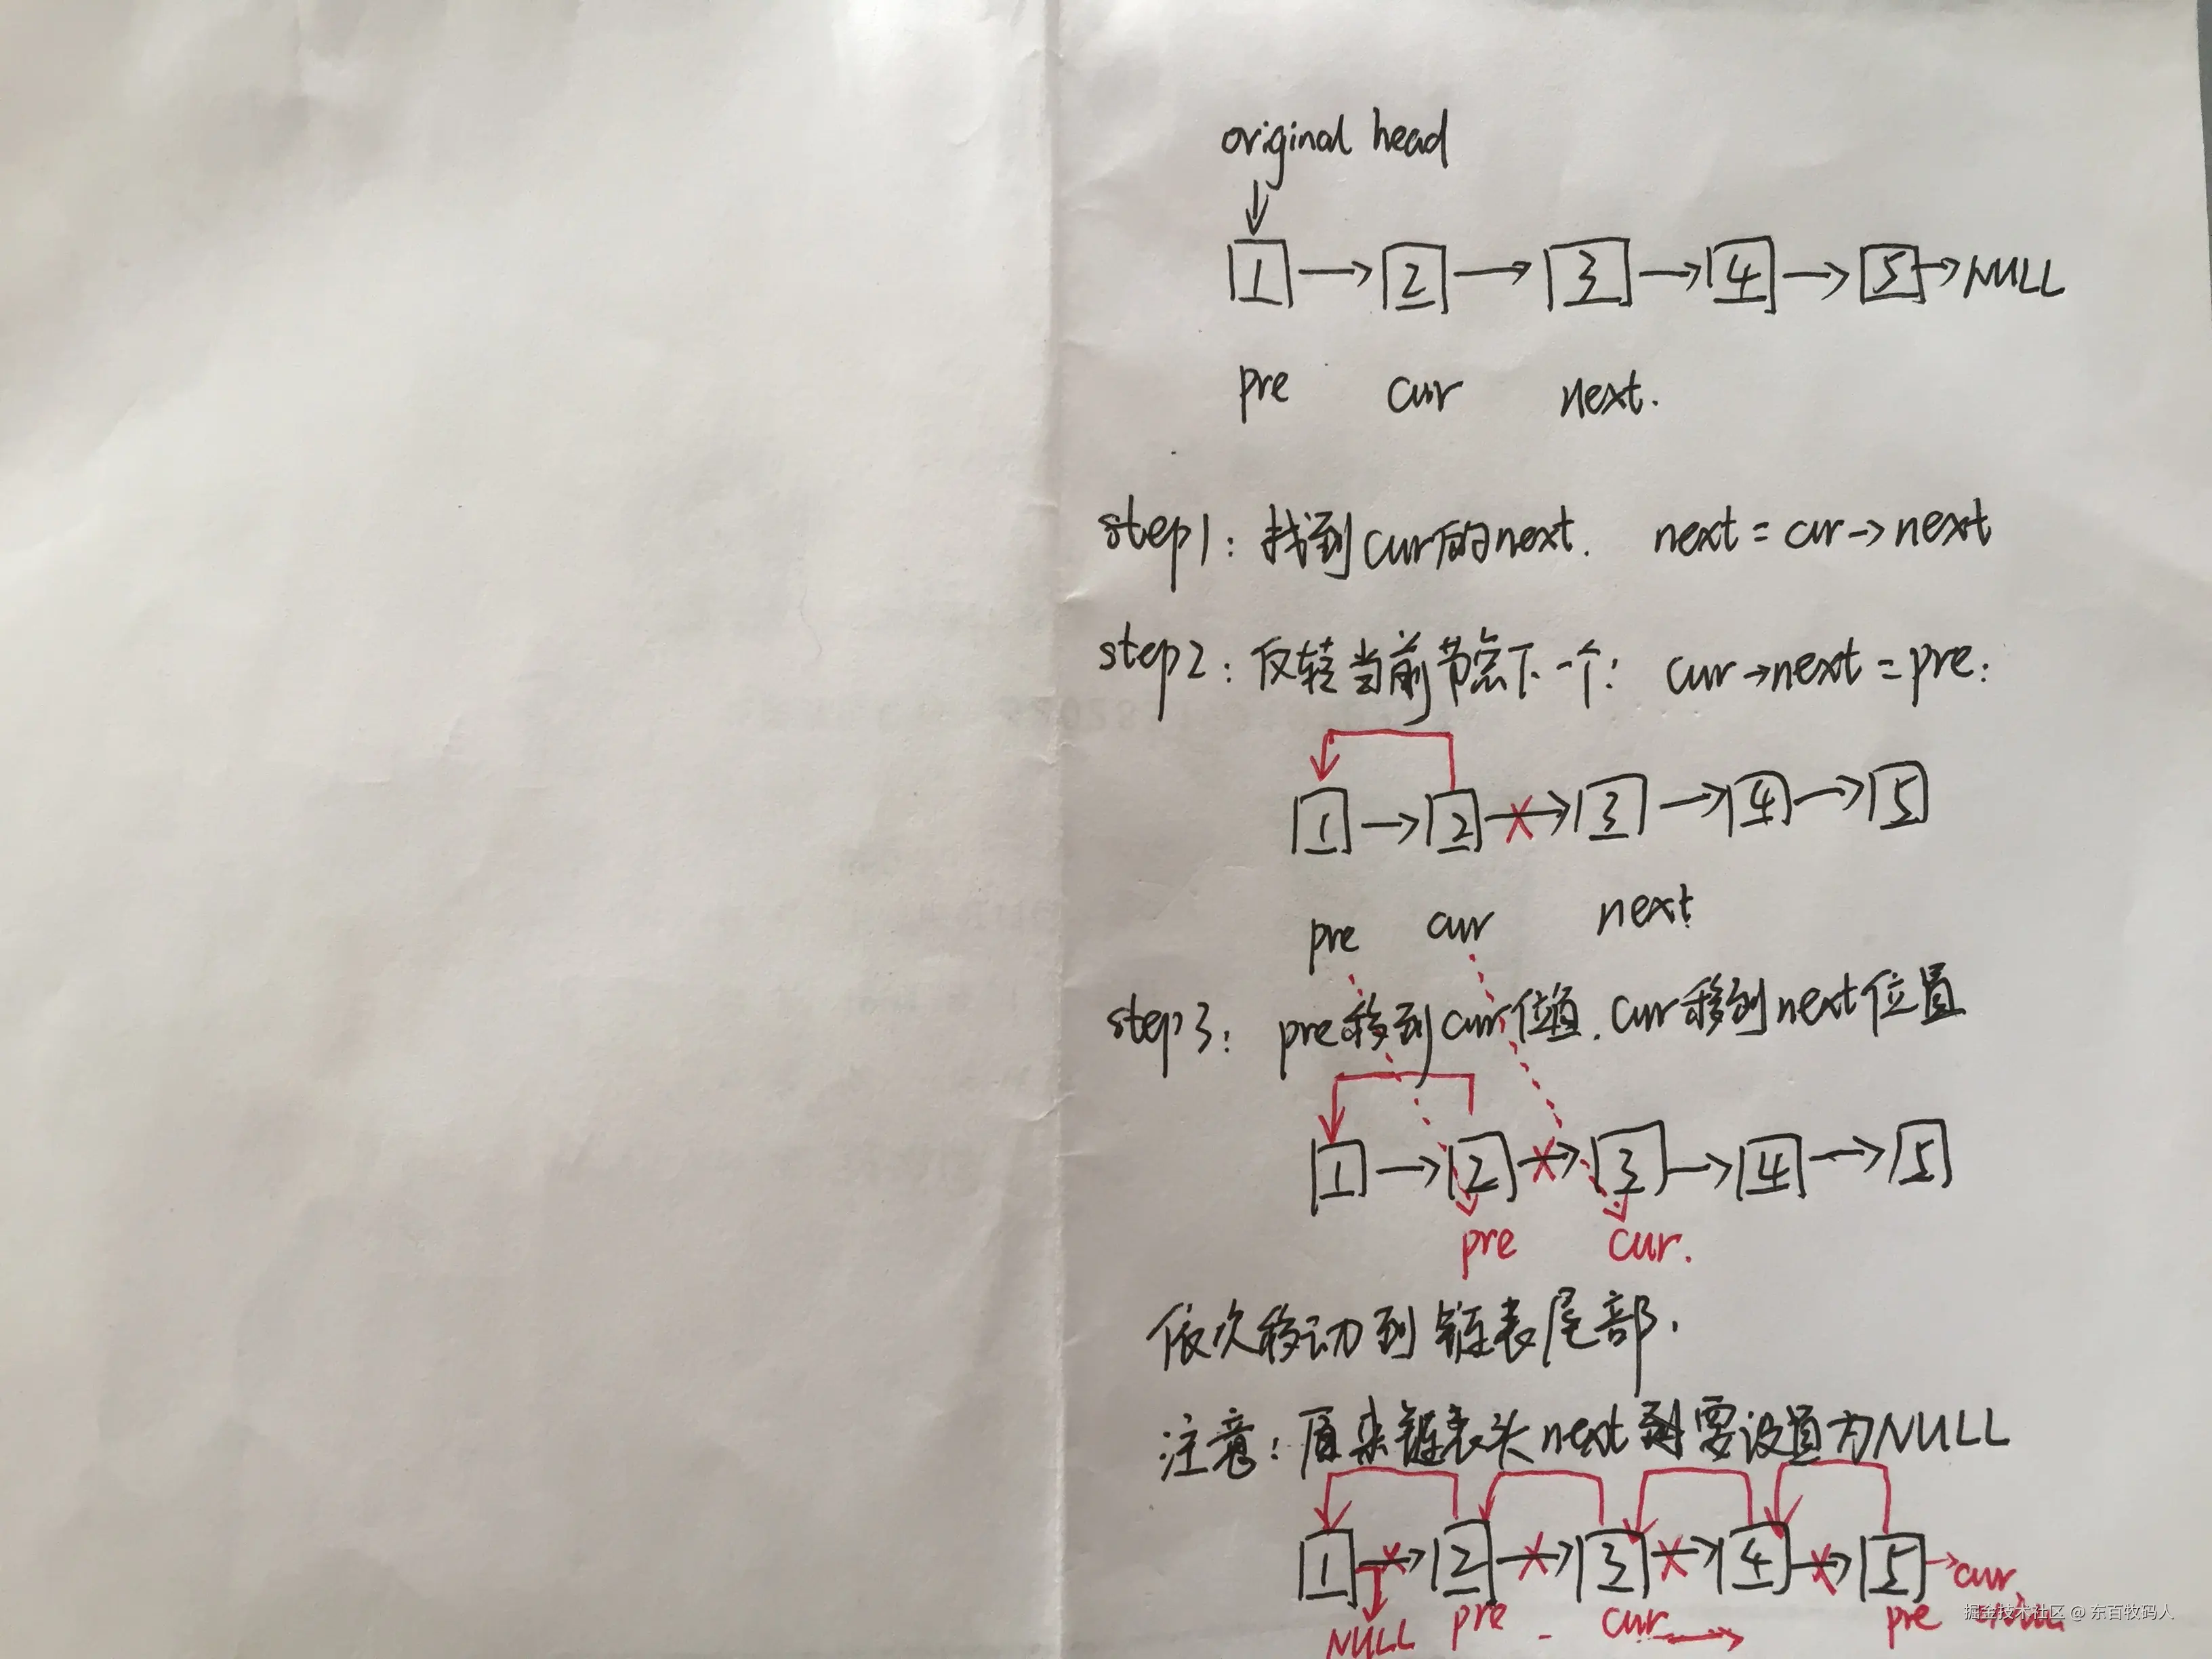 original head
1 → 2 → 3 → 4 → 5 → NULL
pre cur next.
step1: 找到cur的next. next = cur→next
step2: 反转当前节点下一个: cur→next = pre;
1 → 2 → 3 → 4 → 5
pre cur next
step3: pre移到cur位置.cur移到next位置
1 → 2 → 3 → 4 → 5
pre cur.
依次移动到链表尾部.
注意: 原来链表头next 要设置为NULL
1 → 2 → 3 → 4 → 5 → cur
NULL pre cur → pre
掘金技术社区 @ 东百牧码人